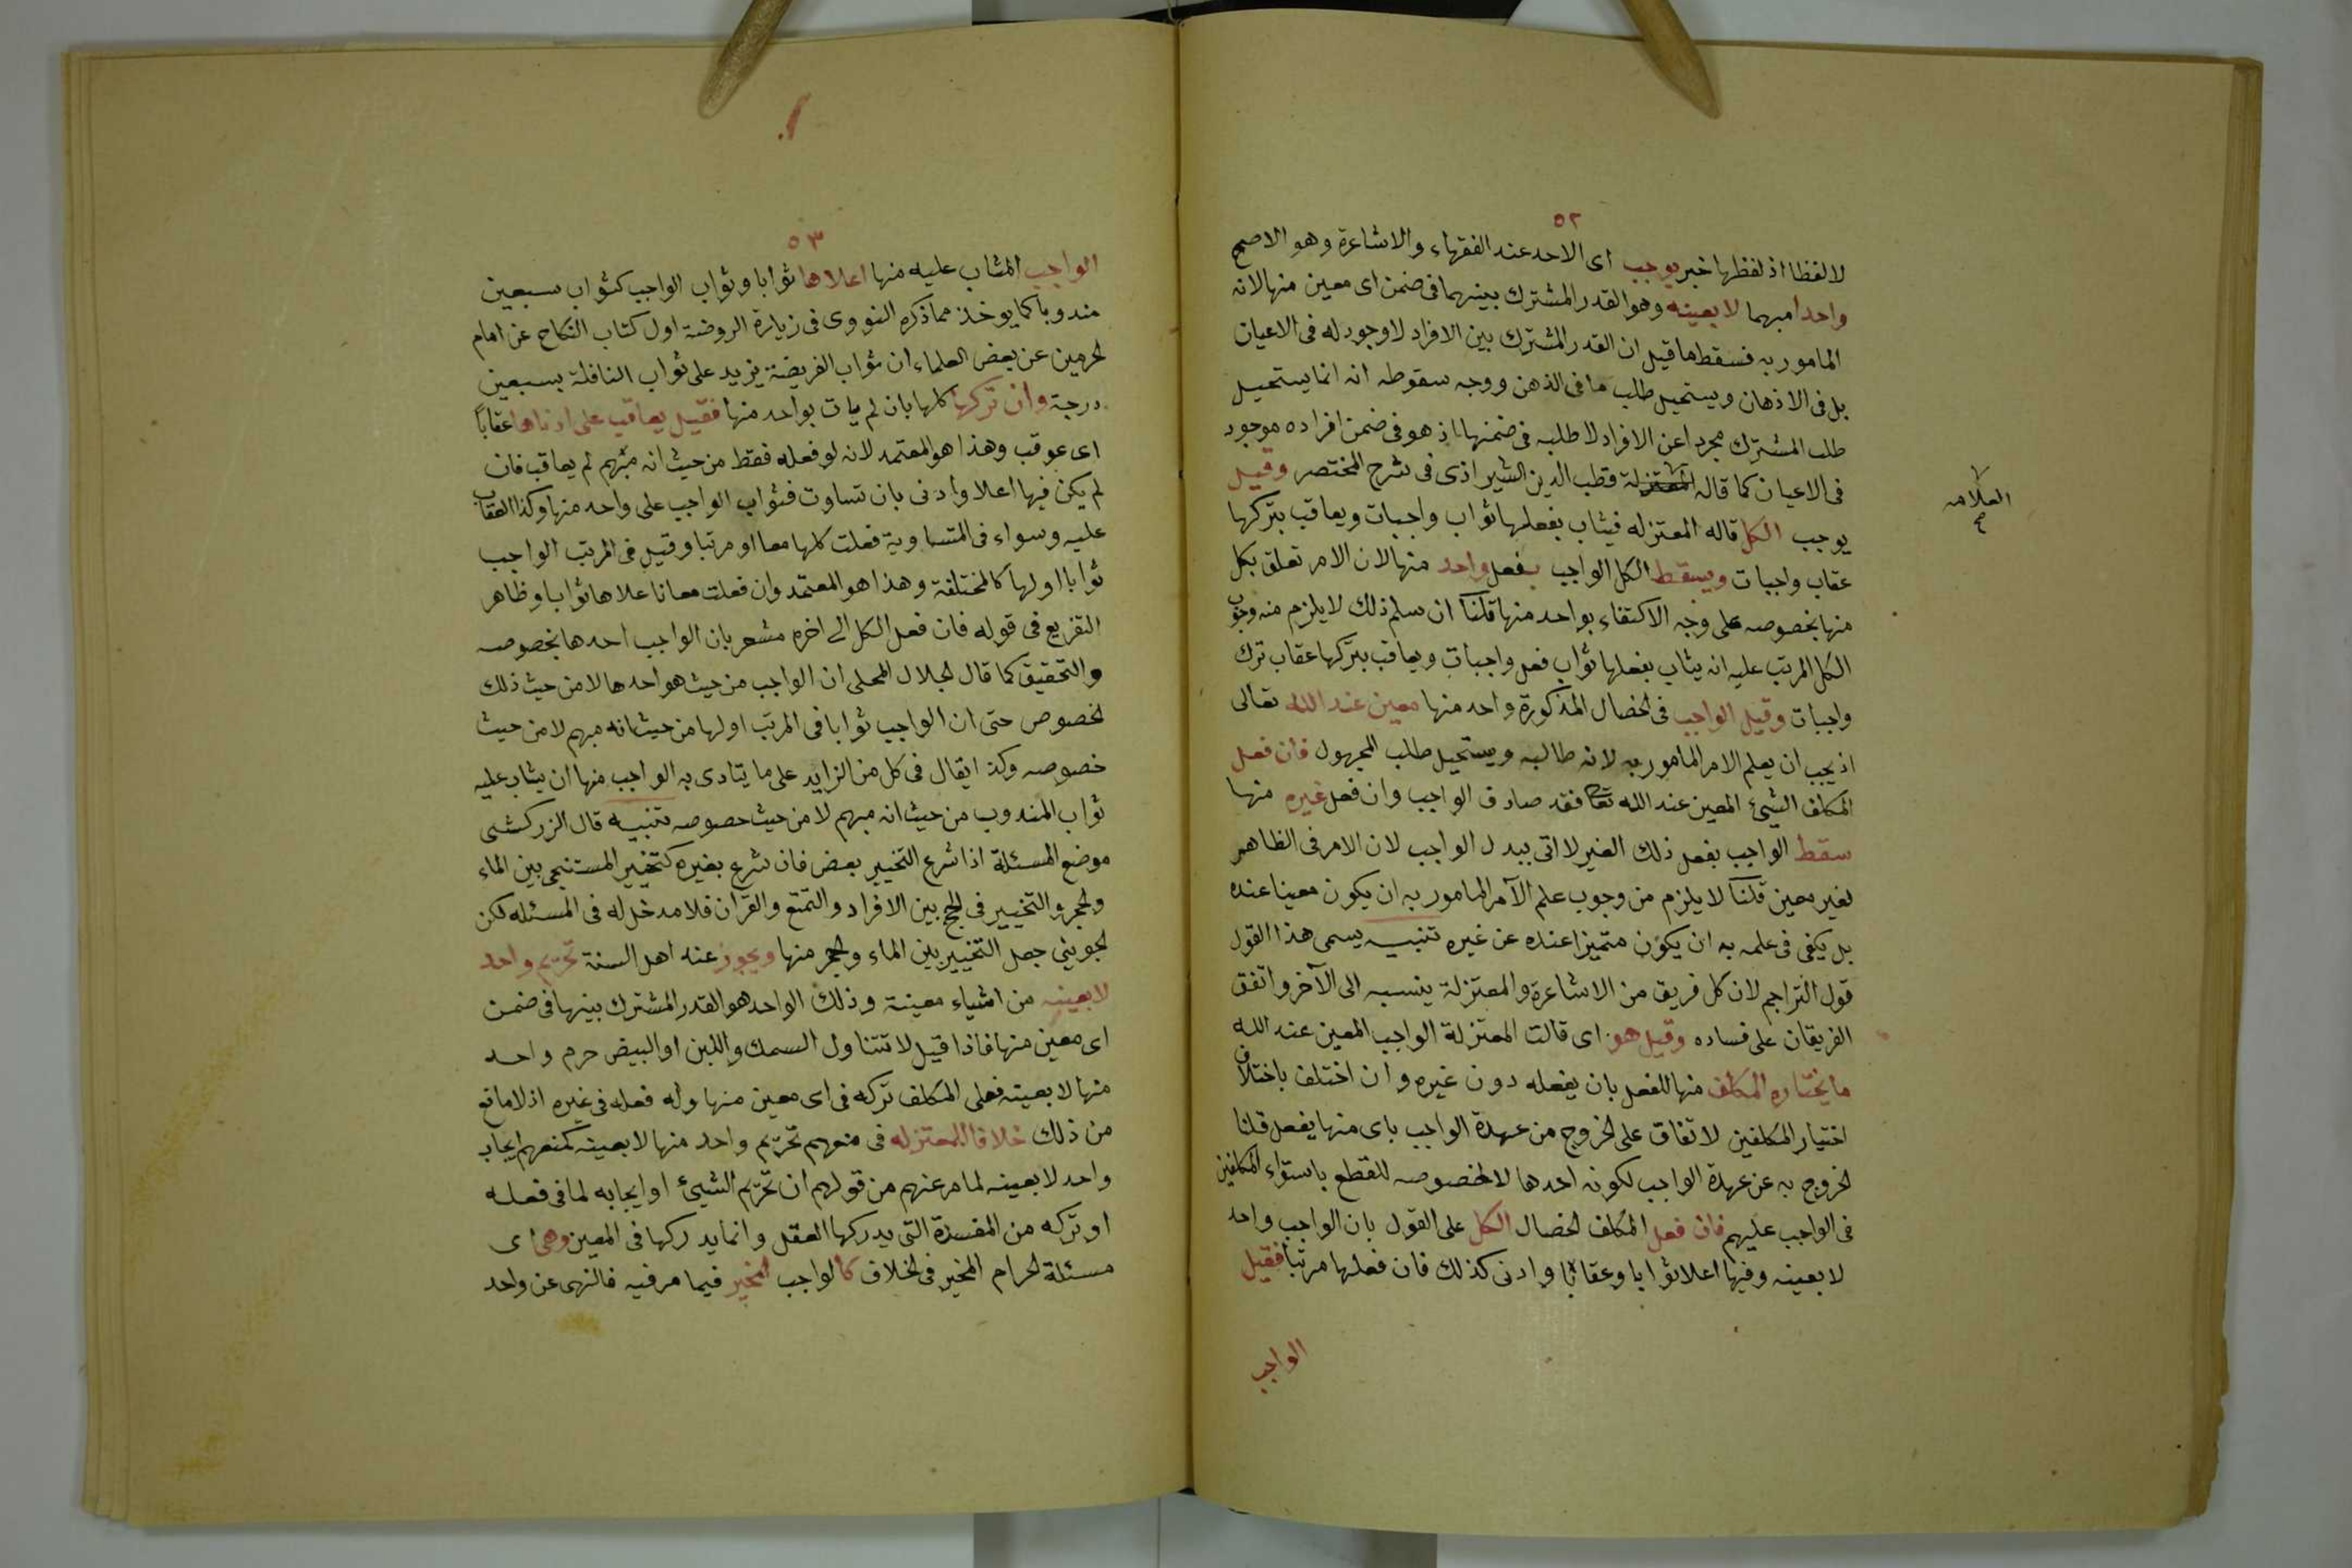 ٥٢
لا لفظا اذ لفظها خبر يوجب اى الاحد عند الفقهاء والاشاعرة وهو الاصح
واحدا مبهما لا بعينه وهو القدر المشترك بينهما فى ضمن اى معين منها لانه
المامور به فسقط ما قيل ان القدر المشترك بين الافراد لا وجود له فى الاعيان
بل فى الاذهان ويستحيل طلب ما فى الذهن ووجه سقوطه انه انما يستحيل
طلب المشترك مجردا عن الافراد لا طلبه فى ضمنها اذ هو فى ضمن افراده موجود
فى الاعيان كما قاله قطب الدين الشيرازى فى شرح المختصر وقيل
العلامه
صح
يوجب الكل قاله المعتزله فيثاب بفعلها ثواب واجبات ويعاقب بتركها
عقاب واجبات ويسقط الكل الواجب بفعل واحد منها لان الامر تعلق بكل
منها بخصوصه على وجه الاكتفاء بواحد منها قلنا ان سلم ذلك لا يلزم منه وجوب
الكل المرتب عليه انه يثاب بفعلها ثواب فعل واجبات ويعاقب بتركها عقاب ترك
واجبات وقيل الواجب فى الخصال المذكورة واحد منها معين عند الله تعالى
اذ يجب ان يعلم الامر المامور به لانه طالبه ويستحيل طلب المجهول فان فعل
المكلف الشيئ المعين عند الله تعالى فقد صادف الواجب وان فعل غيره منها
سقط الواجب بفعل ذلك الغير لا اتى ببدل الواجب لان الامر فى الظاهر
لغير معين قلنا لا يلزم من وجوب علم الآمر المامور به ان يكون معينا عنده
بل يكفى فى علمه به ان يكون متميزا عنده عن غيره تنبيه يسمى هذا القول
قول التراجم لان كل فريق من الاشاعرة والمعتزلة ينسبه الى الآخر واتفق
الفريقان على فساده وقيل هو اى قالت المعتزلة الواجب المعين عند الله
ما يختاره المكلف منها للفعل بان يفعله دون غيره وان اختلف باختلاف
اختيار المكلفين لاتفاق على الخروج من عهدة الواجب باى منها يفعل قلنا
الخروج به عن عهدة الواجب لكونه احدها لا لخصوصه للقطع باستواء المكلفين
فى الواجب عليهم فان فعل المكلف الخصال الكل على القول بان الواجب واحد
لا بعينه وفيها اعلا ثوابا وعقابا وادنى كذلك فان فعلها مرتبا فقيل
الواجب
٥٣
الواجب المثاب عليه منها اعلاها ثوابا وثواب الواجب كثواب سبعين
مندوبا كما يوخذ مما ذكره النووى فى زيادة الروضة اول كتاب النكاح عن امام
الحرمين عن بعض العلماء ان ثواب الفريضة يزيد على ثواب النافلة بسبعين
درجة وان تركها كلها بان لم يات بواحد منها فقيل يعاقب على ادناها عقابًا
اى عوقب وهذا هو المعتمد لانه لو فعله فقط من حيث انه مبهم لم يعاقب فان
لم يكن فيها اعلا وادنى بان تساوت فثواب الواجب على واحد منها وكذا العقاب
عليه وسواء فى المتساوية فعلت كلها معا او مرتبا وقيل فى المرتب الواجب
ثوابا اولها كالمختلفة وهذا هو المعتمد وان فعلت معا فاعلاها ثوابا وظاهر
التفريع فى قوله فان فعل الكل الى اخره مشعر بان الواجب احدها بخصوصه
والتحقيق كما قال الجلال المحلى ان الواجب من حيث هو احدها لا من حيث ذلك
الخصوص حتى ان الواجب ثوابا فى المرتب اولها من حيث انه مبهم لا من حيث
خصوصه وكذا يقال فى كل من الزايد على ما يتادى به الواجب منها ان يثاب عليه
ثواب المندوب من حيث انه مبهم لا من حيث خصوصه تنبيه قال الزركشى
موضع المسئلة اذا شرع التخيير بعض فان شرع بغيره كتخيير المستنجى بين الماء
والحجر والتخيير فى الحج بين الافراد والتمتع والقرآن فلا مدخل له فى المسئله لكن
الجوينى جعل التخيير بين الماء والحجر منها ويجوز عند اهل السنة تحريم واحد
لا بعينه من اشياء معينة وذلك الواحد هو القدر المشترك بينها فى ضمن
اى معين منها فاذا قيل لا تتناول السمك واللبن او البيض حرم واحد
منها لا بعينه فعلى المكلف تركه فى اى معين منها وله فعله فى غيره اذ لا مانع
من ذلك خلافا للمعتزله فى منعهم تحريم واحد منها لا بعينه كمنعهم ايجاب
واحد لا بعينه لما مر عنهم من قولهم ان تحريم الشيئ او ايجابه لما فى فعله
او تركه من المفسدة التى يدركها العقل وانما يدركها فى المعين وهى اى
مسئلة الحرام المخير فى الخلاف كالواجب المخير فيما مر فيه فالنهى عن واحد